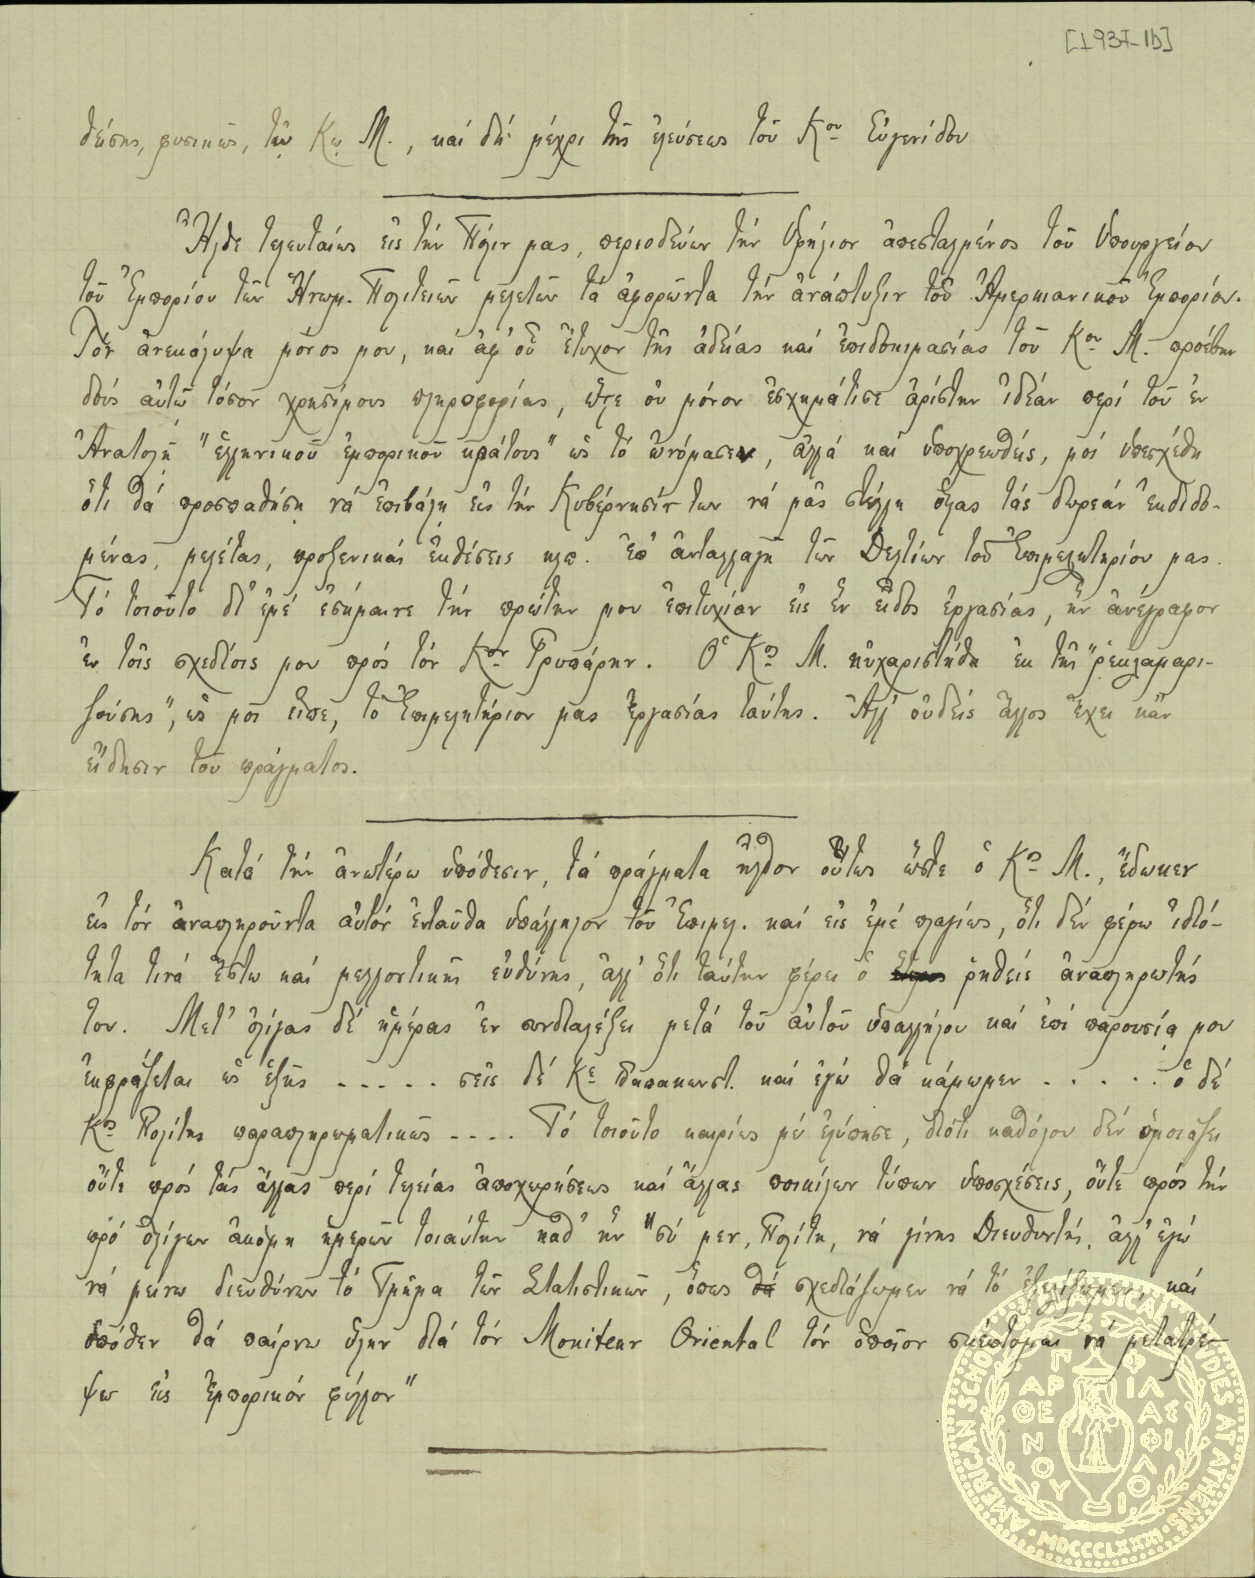 [1937-1b]
θέσης, φυσικῶς, τῷ Κῳ Μ., καί δή μέχρι τῆς ἐλεύσεως τοῦ Κου Εὐγενίδου
Ἦλθε τελευταίως εἰς τήν Πόλιν μας, περιοδεύων τήν Ὑφήλιον ἀπεσταλμένος τοῦ Ὑπουργείου
τοῦ Ἐμπορίου τῶν Ἡνωμ. Πολιτειῶν μελετῶν τά ἀφορῶντα τήν ἀνάπτυξιν τοῦ Ἀμερικανικοῦ Ἐμπορίου.
Τόν ἀνεκάλυψα μόνος μου, καί ἀφ' οὗ ἔτυχον τῆς ἀδείας καί ἐπιδοκιμασίας τοῦ Κου Μ. προέβην
δούς αὐτῷ τόσον χρησίμους πληροφορίας, ὥστε οὐ μόνον ἐσχημάτισε ἀρίστην ἰδέαν περί τοῦ ἐν
Ἀνατολῇ "ἑλληνικοῦ ἐμπορικοῦ κράτους" ὡς τό ὠνόμασεν, ἀλλά καί ὑποχρεωθείς, μοί ὑπεσχέθη
ὅτι θά προσπαθήσῃ νά ἐπιβάλῃ εἰς τήν Κυβέρνησίν των νά μᾶς στέλλῃ ὅλας τάς δωρεάν ἐκδιδο-
μένας, μελέτας, προξενικάς ἐκθέσεις κλπ. ἐπ' ἀνταλλαγῇ τῶν Δελτίων τοῦ Ἐπιμελητηρίου μας.
Τό τοιοῦτο δι' ἐμέ ἐσήμαινε τήν πρώτην μου ἐπιτυχίαν εἰς ἕν εἶδος ἐργασίας, ἥν ἀνέγραφον
ἐν τοῖς σχεδίοις μου πρός τόν Κον Γρυπάρην. Ὁ Κος Μ. ηὐχαριστήθη ἐκ τῆς "ρεκλαμαρι-
ζούσης", ὡς μοί εἶπε, τό Ἐπιμελητήριον μας ἐργασίας ταύτης. Ἀλλ' οὐδείς ἄλλος ἔχει κἄν
εἴδησιν τοῦ πράγματος.
Κατά τήν ἀνωτέρω ὑπόθεσιν, τά πράγματα ἦλθον οὕτως ὥστε ὁ Κος Μ., ἔδωκεν
εἰς τόν ἀναπληροῦντα αὐτόν ἐνταῦθα ὑπάλληλον τοῦ Ἐπιμελ. καί εἰς ἐμέ πλαγίως, ὅτι δέν φέρω ἰδιό-
τητα τινά ἔστω καί μελλοντικῆς εὐθύνης, ἀλλ' ὅτι ταύτην φέρει ὁ ῥηθείς ἀναπληρωτής
του. Μετ' ὀλίγας δέ ἡμέρας ἐν συνδιαλέξει μετά τοῦ αὐτοῦ ὑπαλλήλου καί ἐπί παρουσίᾳ μου
ἐκφράζεται ὡς ἑξῆς ..... σεῖς δέ Κε Παπακωνστ. καί ἐγώ θά κάμωμεν ..... ὁ δέ
Κος Πολίτης παραπληρωματικῶς .... Τό τοιοῦτο καιρίως μέ ἐλύπησε, διότι καθόλου δέν ὁμοιάζει
οὔτε πρός τάς ἄλλας περί τελείας ἀποχωρήσεως καί ἄλλας ποικίλων τύπων ὑποσχέσεις, οὔτε πρός τήν
πρό ὀλίγων ἀκόμη ἡμερῶν τοιαύτην καθ' ἥν "σύ μεν, Πολίτη, νά γίνῃς Διευθυντής, ἀλλ' ἐγώ
νά μείνω διευθύνων τό Τμῆμα τῶν Στατιστικῶν, ὅπως θά σχεδιάζωμεν νά τό ἐξελίξωμεν, καί
ὁπόθεν θά παίρνω ὕλην διά τόν Moniteur Oriental τόν ὁποῖον σκέπτομαι νά μετατρέ-
ψω εἰς ἐμπορικόν φύλλον"
AMERICAN SCHOOL OF CLASSICAL STUDIES AT ATHENS
ΠΑΡΘΕΝΟΥ ΦΙΛΑΣ ΦΙΛΟΙ
MDCCCLXXXI